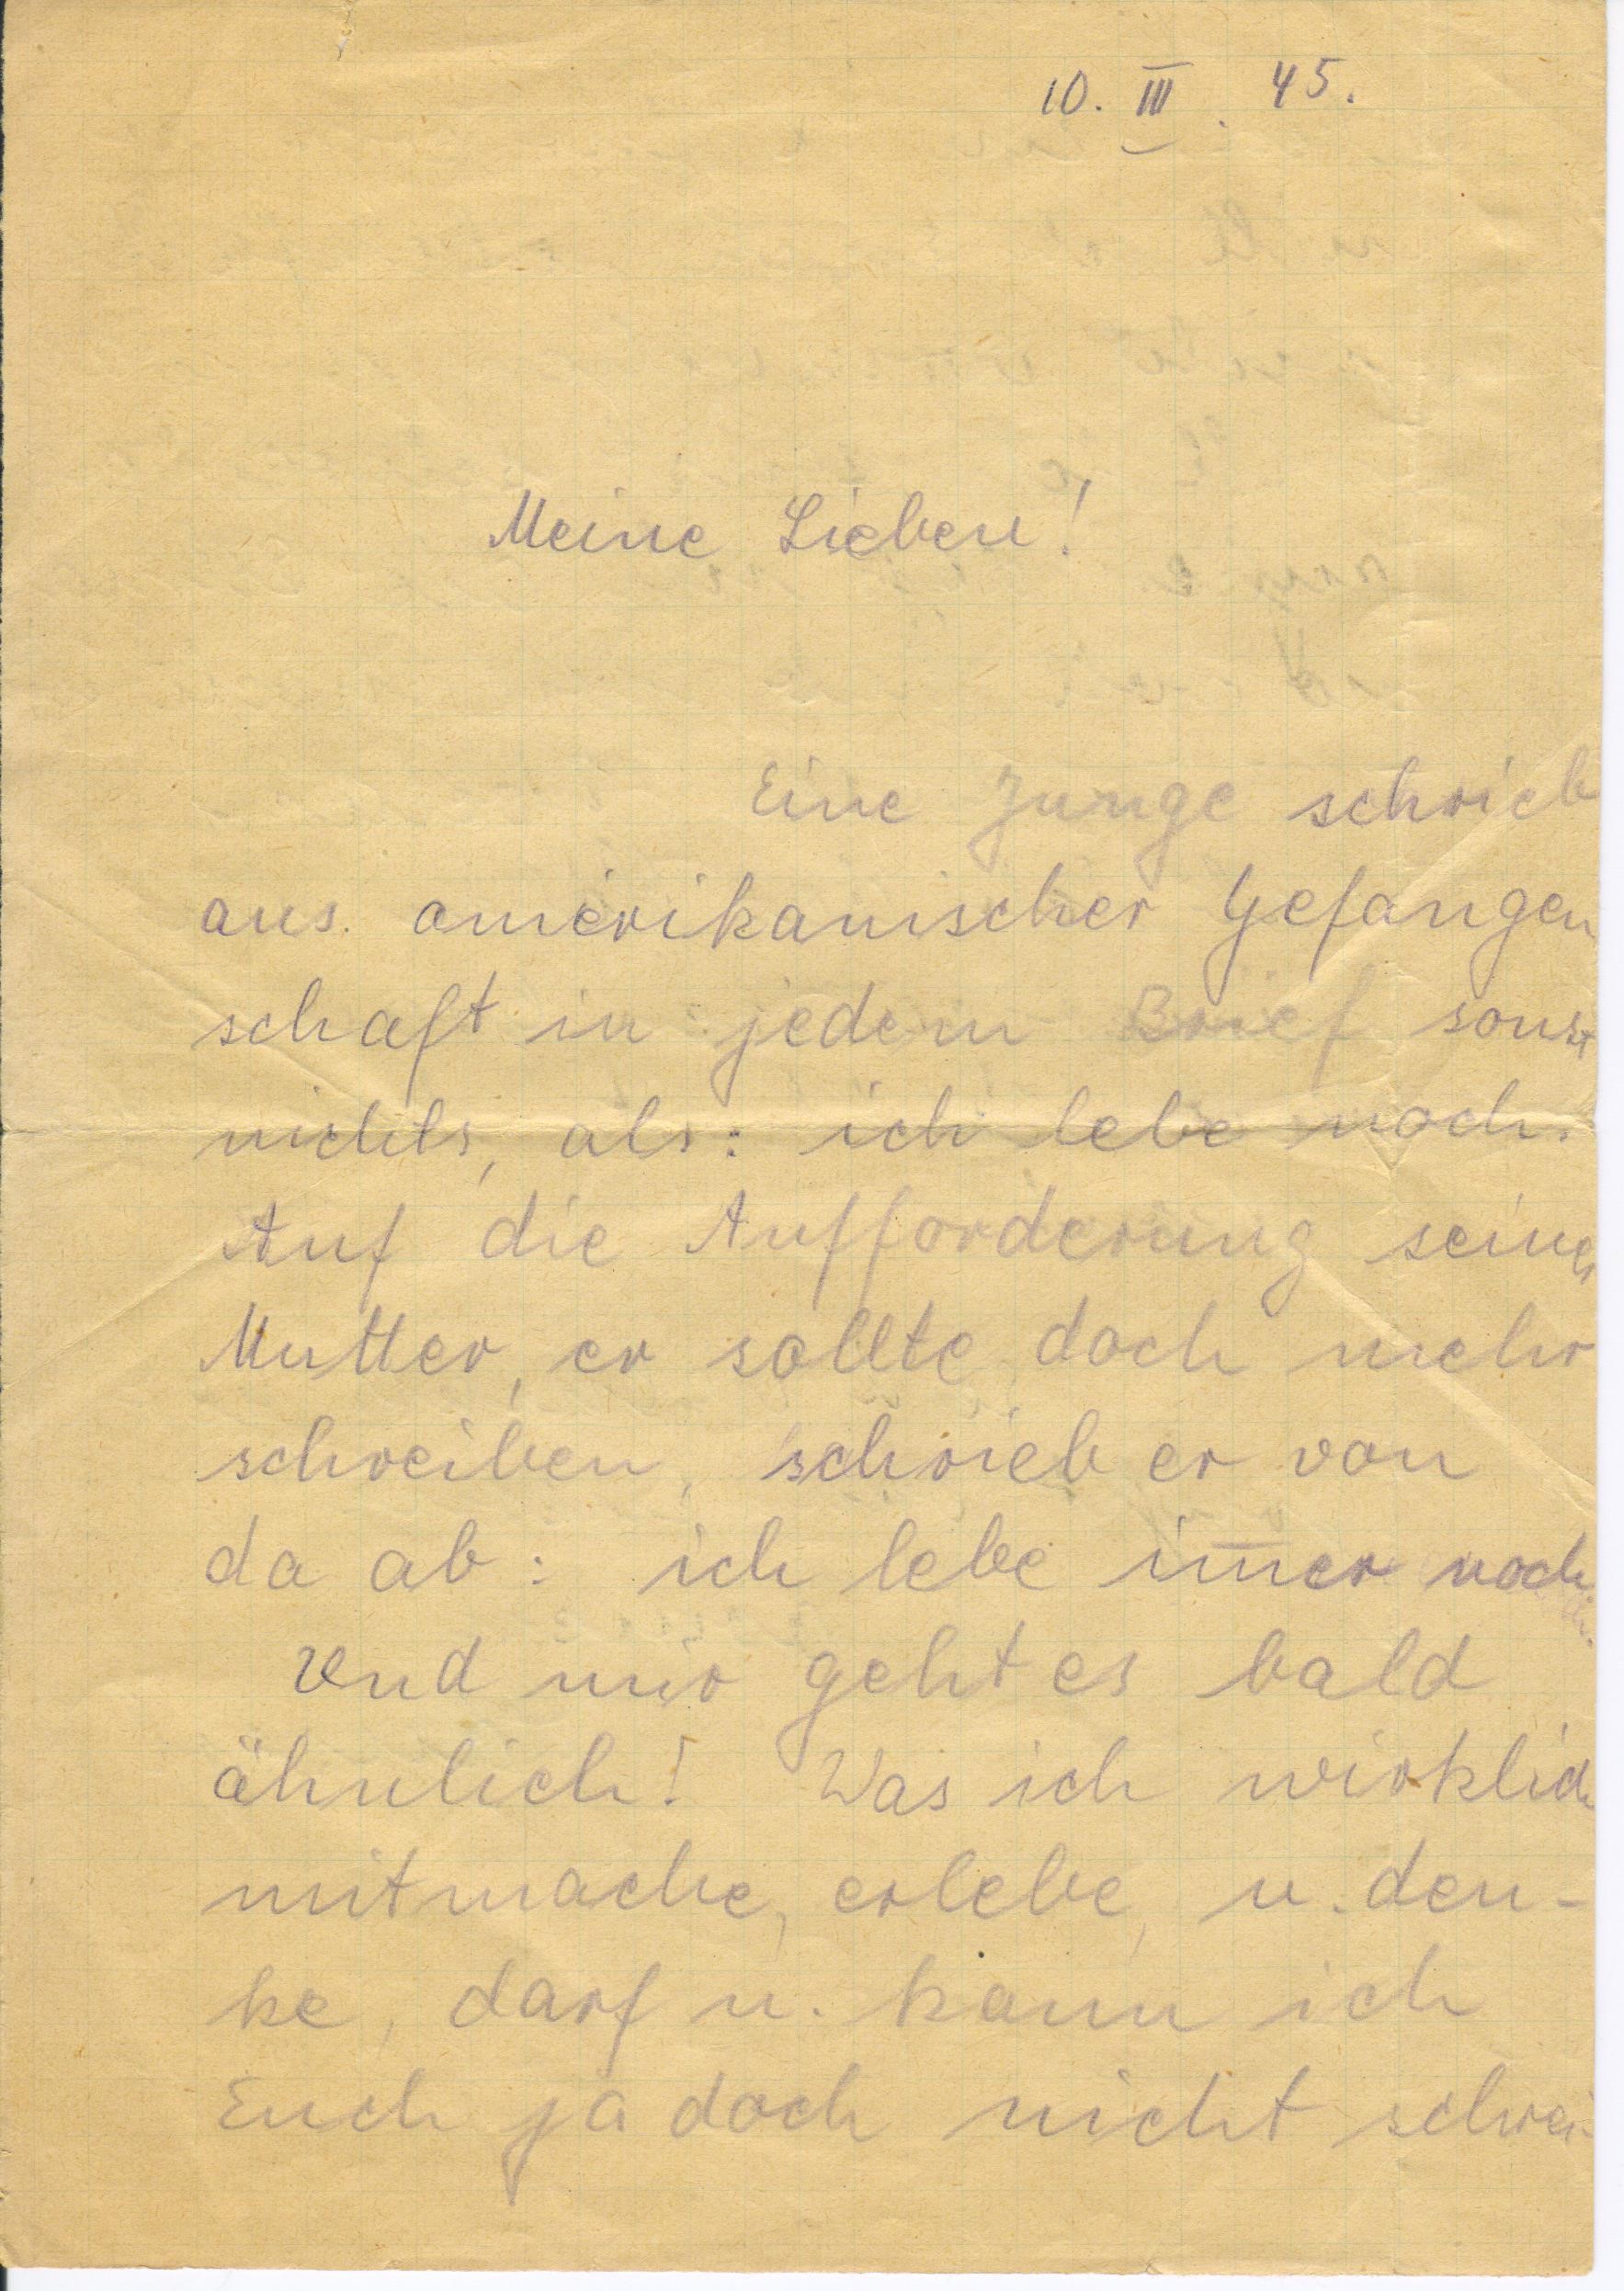 10. III. 45.
Meine Lieben!
Eine Junge schrieb
aus. amerikanischer Gefangen
schaft in jedem Brief sonst
nichts, als: ich lebe noch.
Auf die Aufforderung seiner
Mutter, er sollte doch mehr
schreiben, schrieb er von
da ab: ich lebe im̅er noch.
Und mir geht es bald
ähnlich! Was ich wirklich
mitmache, erlebe, u. den-
ke, darf u. kann ich
Euch ja doch nicht schrei-